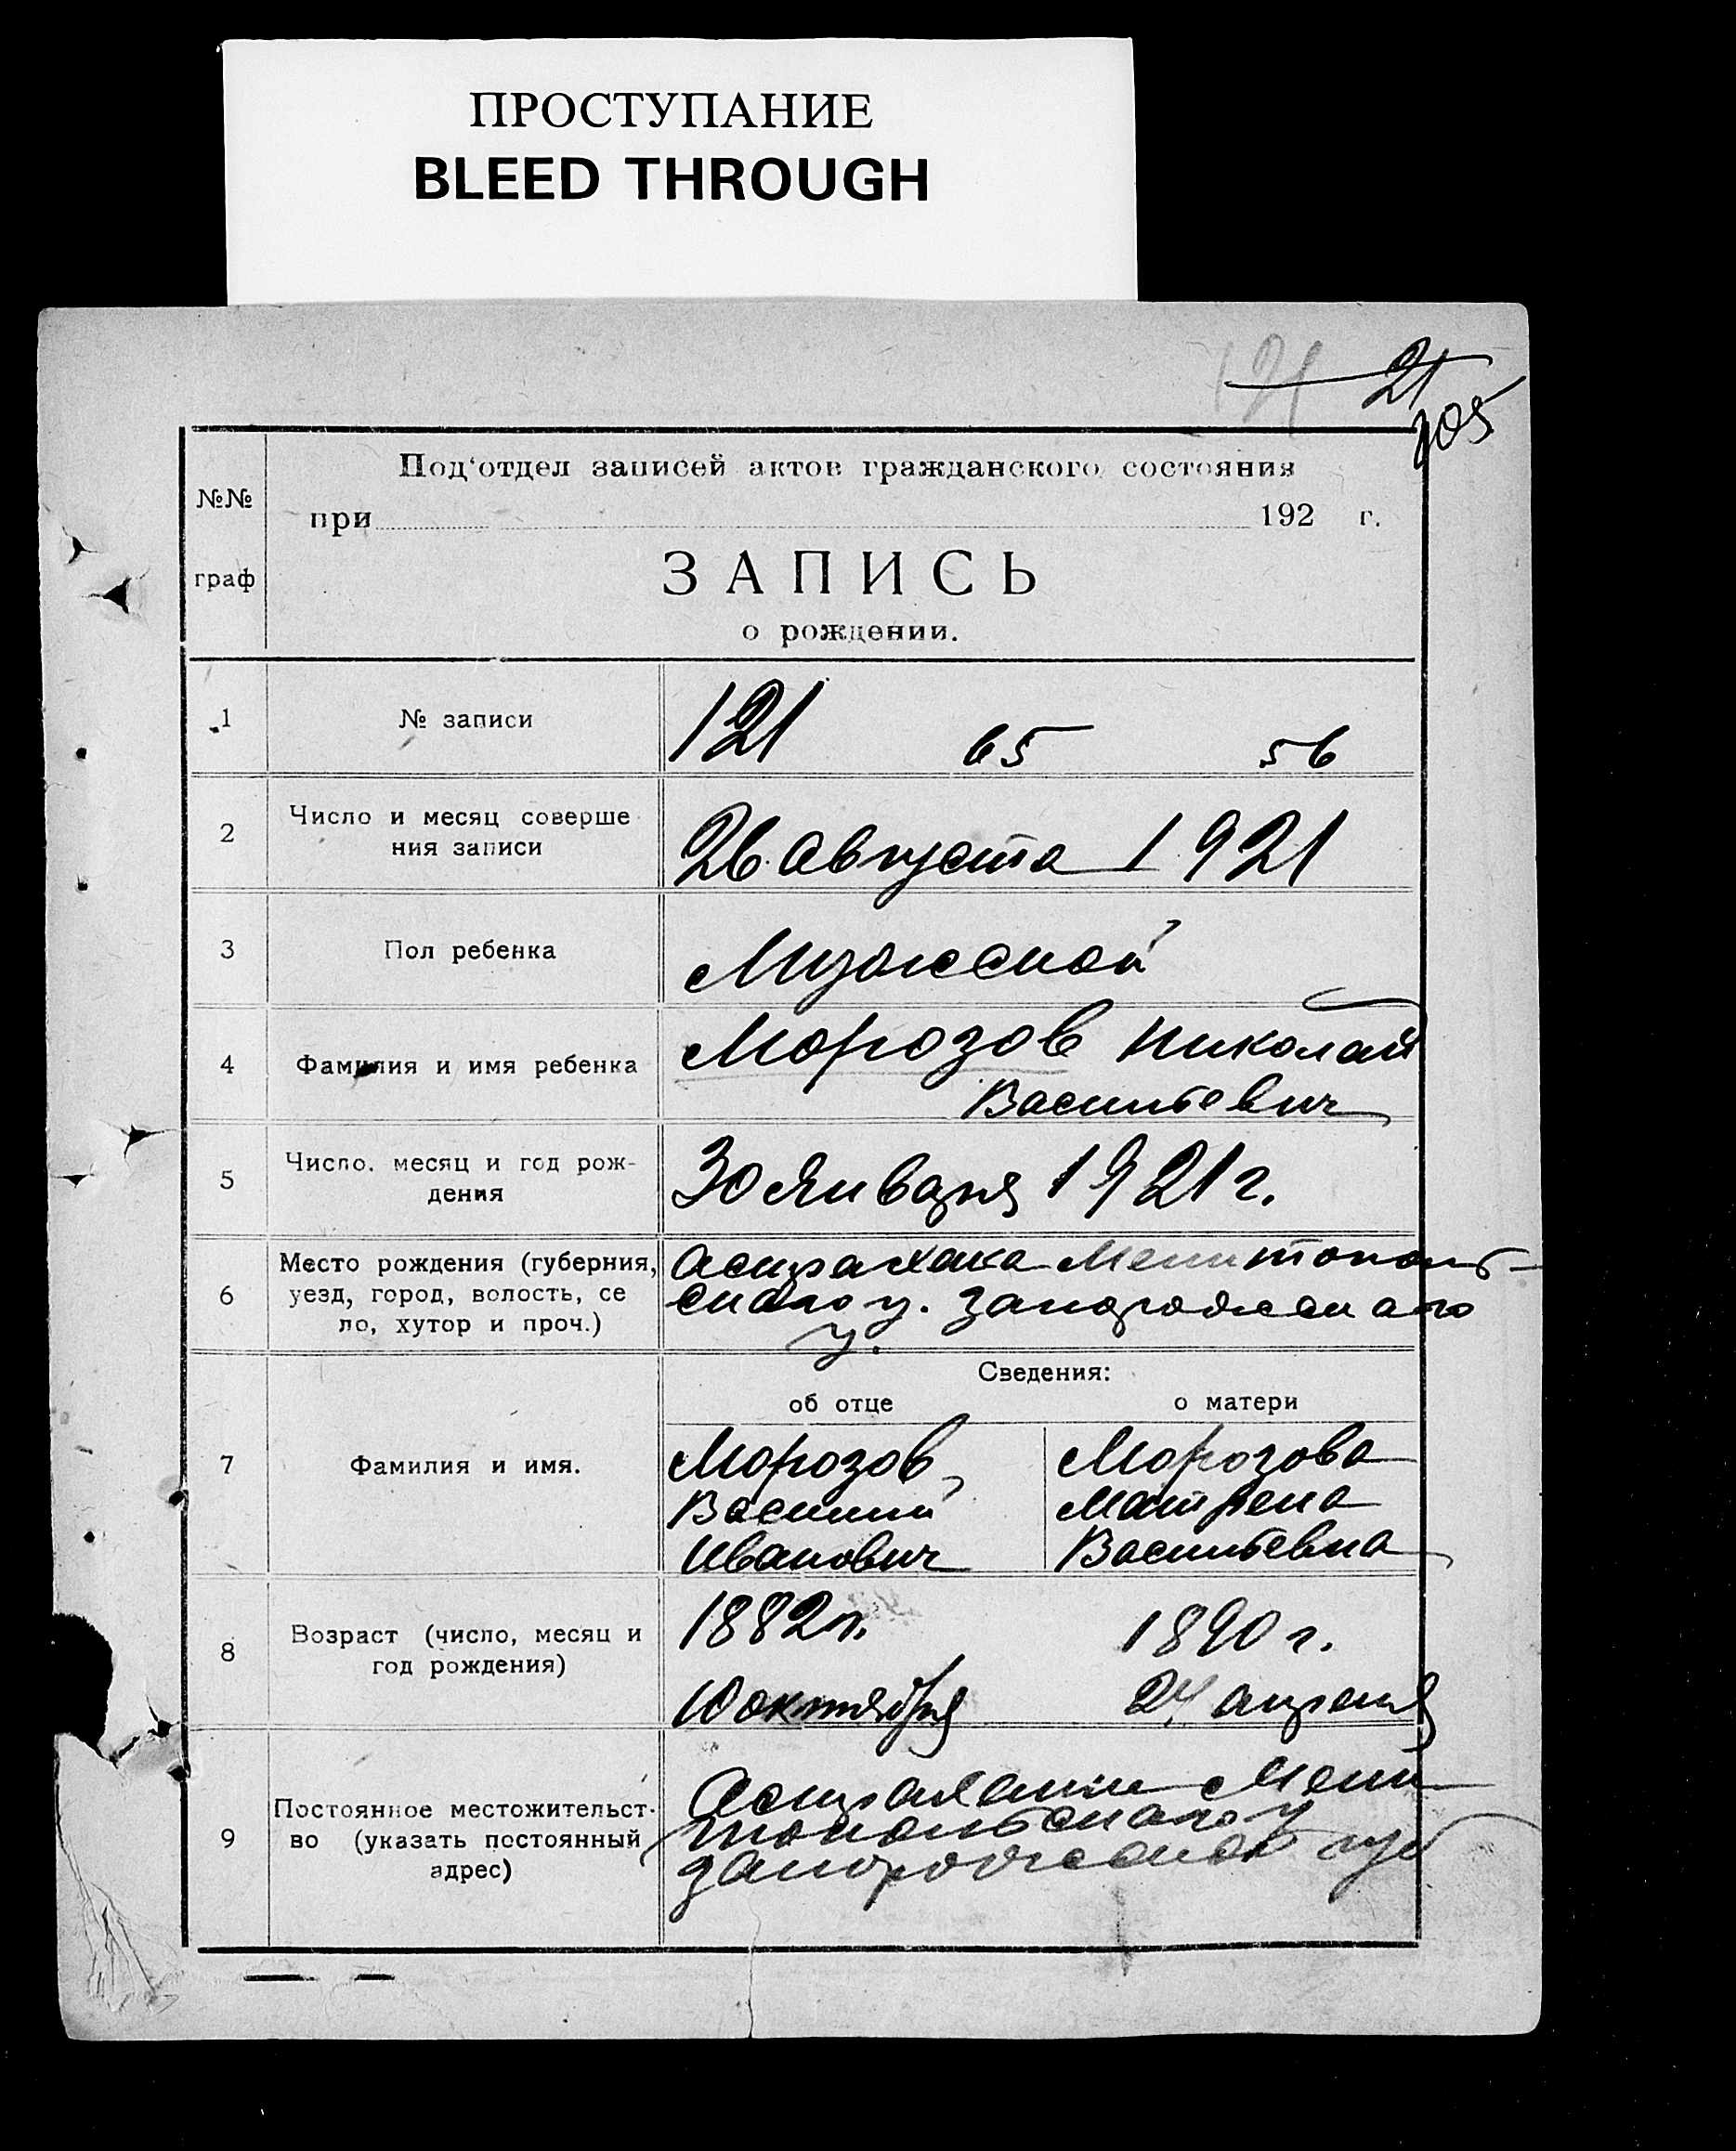 ПРОСТУПАНИЕ
BLEED THROUGH
121 21
205
№№
граф
Под'отдел записей актов гражданского состояния
при 192 г.
ЗАПИСЬ
о рождении.
1 № записи 121 65 56
2 Число и месяц соверше
ния записи 26 Августа 1921
3 Пол ребенка Мужской
4 Фамилия и имя ребенка Морозов Николай
Васильевич
5 Число. месяц и год рож-
дения 30 Января 1921 г.
6 Место рождения (губерния,
уезд, город, волость, се
ло, хутор и проч.)
Астраханка Мелитополь-
скаго у. Запорожскаго
у.
Сведения:
об отце о матери
7 Фамилия и имя.
Морозов Морозова
Василий Матрена
Иванович Васильевна
8 Возраст (число, месяц и
год рождения)
1882 г. 1890 г.
10 октября 24 апреля
9 Постоянное местожительст-
во (указать постоянный
адрес)
Мели
топольскаго у
Запорожской губ